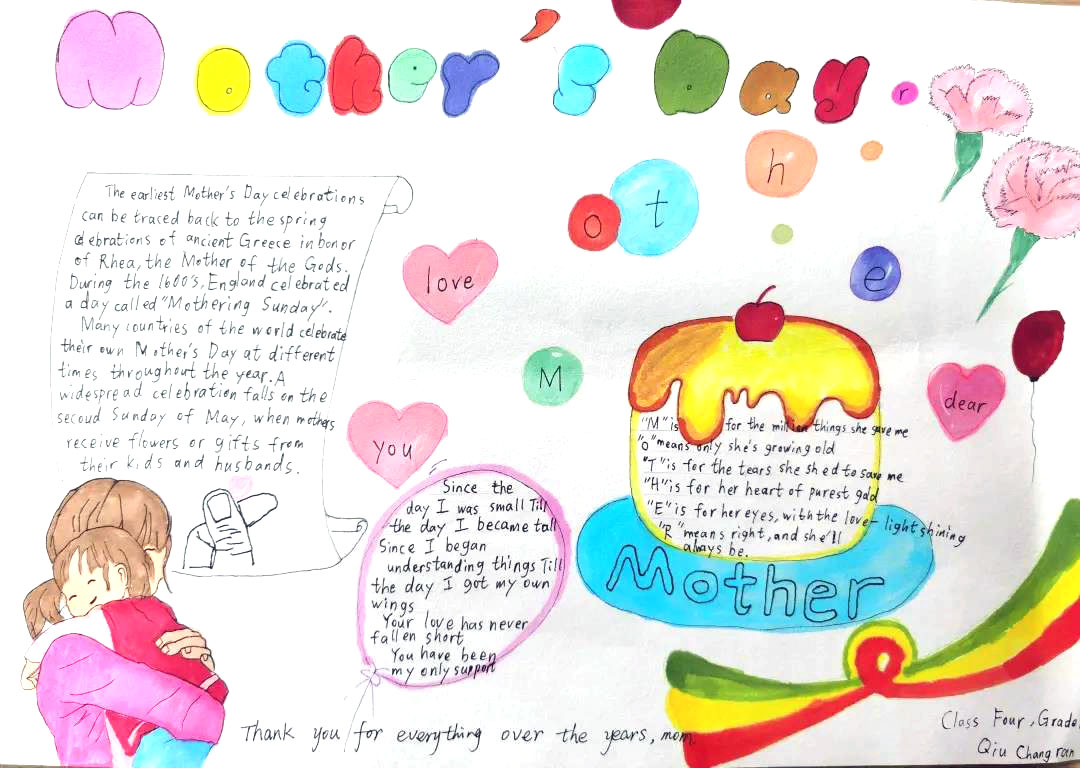 Mother's Day
The earliest Mother's Day celebrations
can be traced back to the spring
celebrations of ancient Greece in honor
of Rhea, the Mother of the Gods.
During the 1600's, England celebrated
a day called "Mothering Sunday".
Many countries of the world celebrate
their own Mother's Day at different
times throughout the year. A
widespread celebration falls on the
secoud Sunday of May, when mothers
receive flowers or gifts from
their kids and husbands.
love
you
M
o
t
h
e
r
dear
Since the
day I was small Till
the day I became tall
Since I began
understanding things Till
the day I got my own
wings
Your love has never
fallen short
You have been
my only support
"M" is for the million things she gave me
"O" means only she's growing old
"T" is for the tears she shed to save me
"H" is for her heart of purest gold
"E" is for her eyes, with the love-light shining
"R" means right, and she'll
always be.
Mother
Thank you for everything over the years, mom.
Class Four, Grade
Qiu Changran